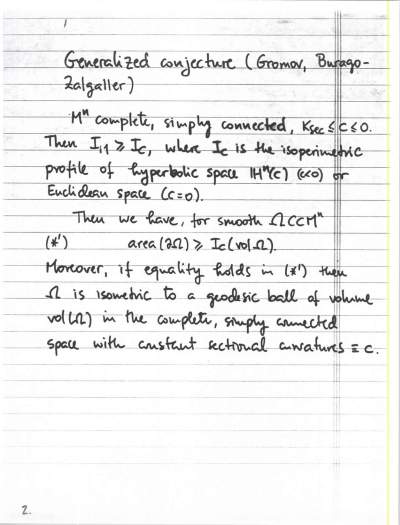 1
Generalized conjecture (Gromov, Burago-
Zalgaller)
Mⁿ complete, simply connected, K_sec ≤ c ≤ 0.
Then I_M ≥ I_c, where I_c is the isoperimetric
profile of hyperbolic space ℍⁿ(c) (c<0) or
Euclidean space (c=0).
Then we have, for smooth Ω⊂⊂Mⁿ
(*') area(∂Ω) ≥ I_c(vol Ω).
Moreover, if equality holds in (*') then
Ω is isometric to a geodesic ball of volume
vol(Ω) in the complete, simply connected
space with constant sectional curvatures ≡ c.
2.